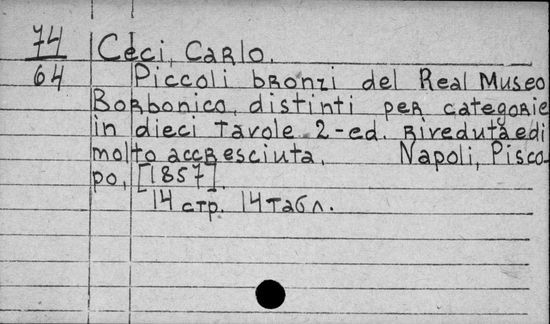 74 Ceci, Carlo.
64 Piccoli bronzi del Real Museo
Borbonico, distinti per categorie
in dieci tavole 2-ed. riveduta e di
molto accresciuta. Napoli, Pisco-
po, [1857].
14 стр. 14 табл.